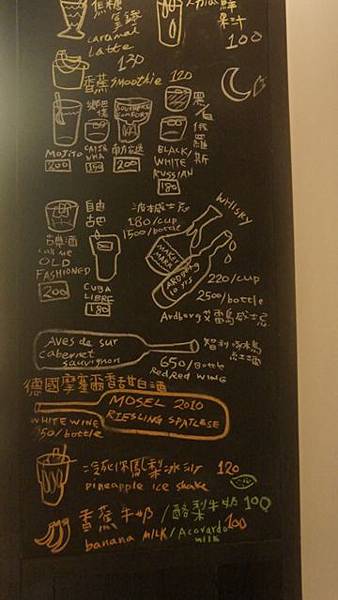 焦糖
caramel
Latte
130
鮮
果汁
100
香蕉 smoothie 120
MOJITO
200
SOUTHERN
COMFORT
南方安逸
200
黑/白俄羅斯
BLACK/
WHITE
RUSSIAN
180
古典酒
OLD
FASHIONED
200
自由古巴
CUBA
LIBRE
180
WHISKY
180/cup
1500/bottle
MAKER'S
MARK
ARDBERG
10 yrs
220/cup
2500/bottle
Ardborg艾雷島威士忌
Aves de sur
cabernet
sauvignon
智利
紅酒
650/Bottle
Red Red WINE
德國摩塞爾香甜白酒
MOSEL 2010
RIESLING SPATLESE
WHITE WINE
/bottle
鳳梨冰沙 120
pineapple ice shake
香蕉牛奶/酪梨牛奶 100
banana MILK/Acovardo 100
MILK